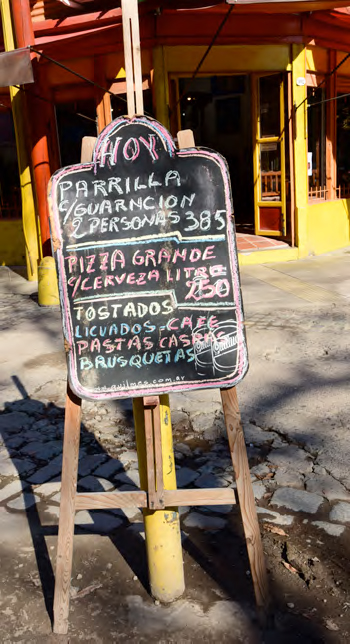 HOY
PARRILLA
C/GUARNCION
/2 PERSONAS 385
PIZZA GRANDE
C/CERVEZA LITRO
250
TOSTADOS
LICUADOS - CAFE
PASTAS CASRAS
BRUSQUETAS
Quilmes
www.quilmes.com.ar